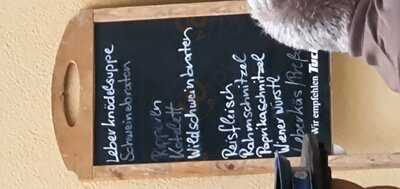 Leberknödelsuppe
Schweinebraten
Kotelett
Wildschweinbraten
Reisfleisch
Rahmschnitzel
Paprikaschnitzel
Wiener Würstl
Leberkäs
Wir empfehlen